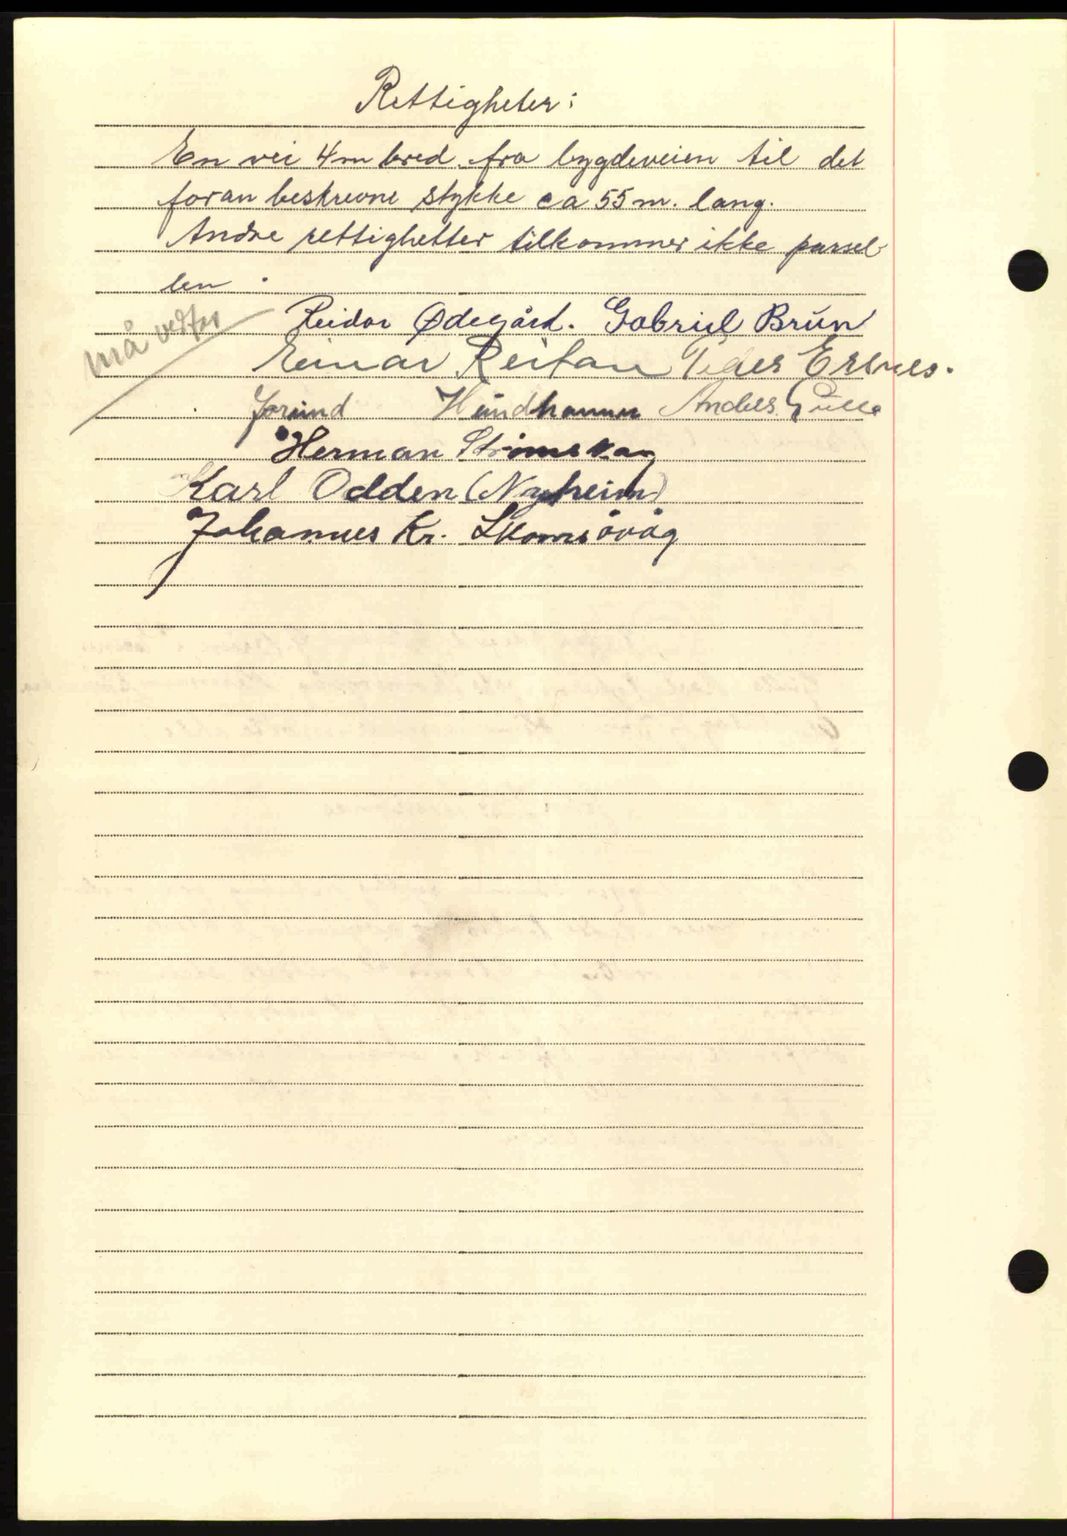 Rettigheter:
En vei 4m bred fra bygdeveien til det
foran beskrevne stykke ca 55 m. lang.
Andre rettighetter tilkommer ikke parsel-
len.
må
Reidar Ødegård. Gabriel Brun
Einar Reitan Peder
Jørund Hundhammer Anders Gulla
Herman Strømskag
Karl Odden (Nyheim)
Johannes Kr. Skomsövåg